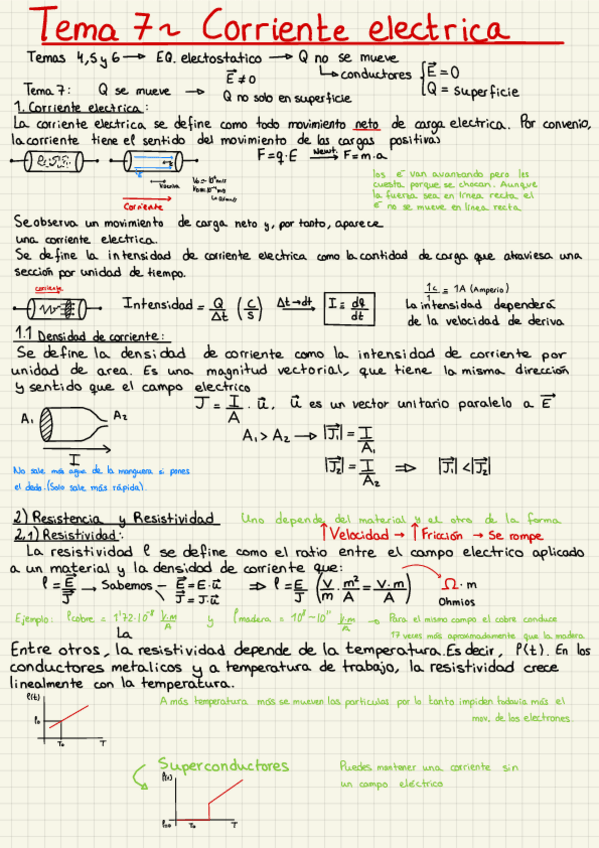 Tema 7~ Corriente electrica
Temas 4, 5 y 6 → EQ. electostatico → Q no se mueve
↳ conductores { E⃗ = 0
Q = Superficie
Tema 7: Q se mueve → E⃗ ≠ 0
Q no solo en superficie
1. Corriente electrica:
La corriente electrica se define como todo movimiento neto de carga electrica. Por convenio,
la corriente tiene el sentido del movimiento de las cargas positivas
F = q·E → Newt. F = m·a
Corriente
los e⁻ van avanzando pero les
cuesta porque se chocan. Aunque
la fuerza sea en linea recta, el
e⁻ no se mueve en linea recta
Se observa un movimiento de carga neto y, por tanto, aparece
una corriente electrica.
Se define la intensidad de corriente electrica como la cantidad de carga que atraviesa una
sección por unidad de tiempo.
corriente
Intensidad = Q/Δt (C/S) Δt→dt I = dQ/dt
1C/1 = 1A (Amperio)
La intensidad dependerá
de la velocidad de deriva
1.1 Densidad de corriente:
Se define la densidad de corriente como la intensidad de corriente por
unidad de area. Es una magnitud vectorial, que tiene la misma dirección
y sentido que el campo electrico
J⃗ = I/A · u⃗, u⃗ es un vector unitario paralelo a E⃗
A₁ A₂
I
A₁ > A₂ → |J⃗₁| = I/A₁
|J⃗₂| = I/A₂ ⇒ |J⃗₁| < |J⃗₂|
No sale más agua de la manguera si pones
el dedo. (Solo sale más rápida).
2) Resistencia y Resistividad Uno depende del material y el otro de la forma
2.1) Resistividad: ↑Velocidad → ↑Fricción → Se rompe
La resistividad ρ se define como el ratio entre el campo electrico aplicado
a un material y la densidad de corriente que:
ρ = E⃗/J⃗ → Sabemos - E⃗ = E·u⃗
J⃗ = J·u⃗
⇒ ρ = E/J (V/m · m²/A = V·m/A) Ω·m
Ohmios
Ejemplo: ρcobre = 1'72·10⁻⁸ V·m/A y ρmadera = 10⁸~10¹¹ V·m/A → Para el mismo campo el cobre conduce
17 veces más aproximadamente que la madera
La
Entre otros, la resistividad depende de la temperatura. Es decir, ρ(t). En los
conductores metalicos y a temperatura de trabajo, la resistividad crece
linealmente con la temperatura.
ρ(t)
ρ₀
T₀ T
A más temperatura más se mueven las particulas por lo tanto impiden todavia más el
mov. de los electrones.
Superconductores
ρ(t)
T₀ T
Puedes mantener una corriente sin
un campo eléctrico